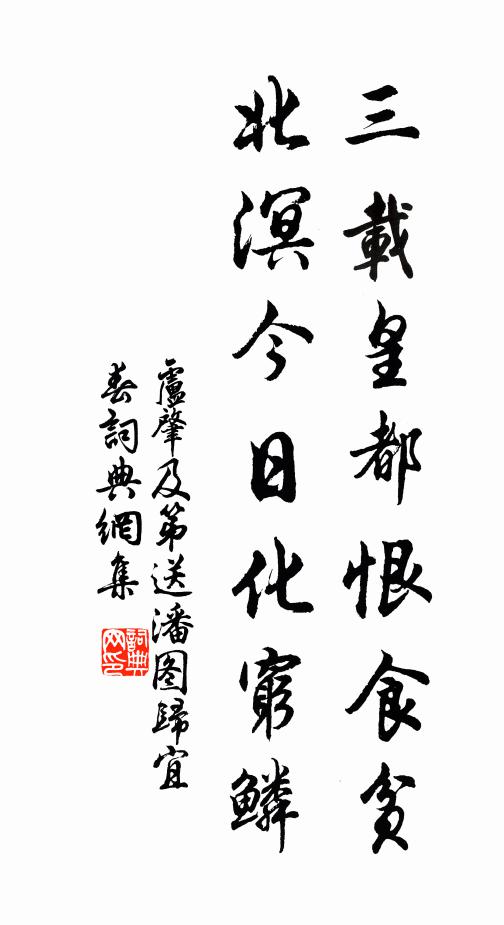 三載皇都恨食貧
北溟今日化窮鱗
盧肇及第送潘圖歸宜
春詞典網集
詞典
网印